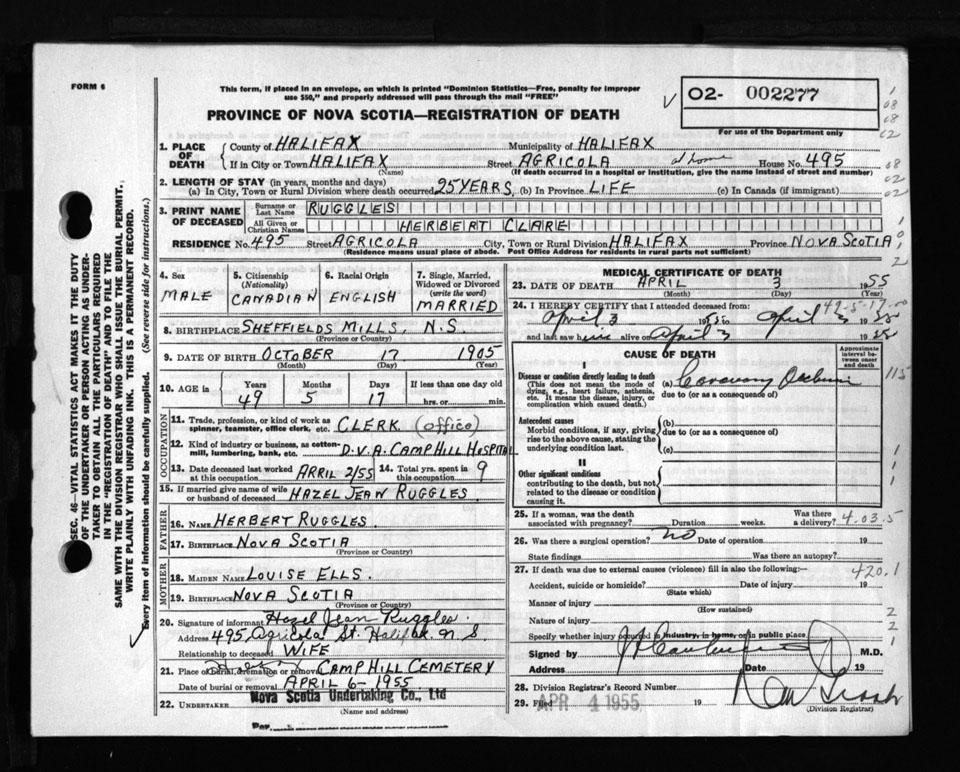 FORM 6
This form, if placed in an envelope, on which is printed "Dominion Statistics—Free, penalty for improper
use $50," and properly addressed will pass through the mail "FREE"
PROVINCE OF NOVA SCOTIA—REGISTRATION OF DEATH
O2- 002277
For use of the Department only
1. PLACE OF DEATH
County of HALIFAX Municipality of HALIFAX
If in City or Town HALIFAX Street AGRICOLA at home House No. 495
(Name) (If death occurred in a hospital or institution, give the name instead of street and number)
2. LENGTH OF STAY (in years, months and days)
(a) In City, Town or Rural Division where death occurred 25 YEARS, (b) In Province LIFE (c) In Canada (if immigrant)
3. PRINT NAME OF DECEASED
Surname or Last Name RUGGLES
All Given or Christian Names HERBERT CLARE
RESIDENCE No. 495 Street AGRICOLA City, Town or Rural Division HALIFAX Province NOVA SCOTIA
(Residence means usual place of abode. Post Office Address for residents in rural parts not sufficient)
4. Sex MALE
5. Citizenship (Nationality) CANADIAN
6. Racial Origin ENGLISH
7. Single, Married, Widowed or Divorced (write the word) MARRIED
8. BIRTHPLACE SHEFFIELDS MILLS, N.S.
(Province or Country)
9. DATE OF BIRTH OCTOBER 17 1905
(Month) (Day) (Year)
10. AGE in Years Months Days If less than one day old
49 5 17 hrs. or min.
OCCUPATION
11. Trade, profession, or kind of work as spinner, teamster, office clerk, etc. CLERK (office)
12. Kind of industry or business, as cotton-mill, lumbering, bank, etc. D.V.A. CAMP HILL HOSPITAL
13. Date deceased last worked at this occupation APRIL 2/55 14. Total yrs. spent in this occupation 9
15. If married give name of wife or husband of deceased HAZEL JEAN RUGGLES
FATHER
16. NAME HERBERT RUGGLES.
17. BIRTHPLACE NOVA SCOTIA
(Province or Country)
MOTHER
18. MAIDEN NAME LOUISE ELLS.
19. BIRTHPLACE NOVA SCOTIA
(Province or Country)
20. Signature of informant Hazel Jean Ruggles.
Address 495, Agricola St. Halifax N.S
Relationship to deceased WIFE
21. Place of burial, cremation or removal CAMP HILL CEMETERY
Date of burial or removal APRIL 6-1955
22. UNDERTAKER Nova Scotia Undertaking Co., Ltd
(Name and address)
Per
MEDICAL CERTIFICATE OF DEATH
23. DATE OF DEATH APRIL 3 1955
(Month) (Day) (Year)
24. I HEREBY CERTIFY that I attended deceased from
April 3 1955 to April 3 1955
and last saw him alive on April 3 1955
CAUSE OF DEATH
Approximate interval between onset and death
I
Disease or condition directly leading to death
(This does not mean the mode of dying, e.g., heart failure, asthenia, etc. It means the disease, injury, or complication which caused death.)
(a) Coronary
due to (or as a consequence of)
Antecedent causes
Morbid conditions, if any, giving rise to the above cause, stating the underlying condition last.
(b)
due to (or as a consequence of)
(c)
II
Other significant conditions
contributing to the death, but not related to the disease or condition causing it.
25. If a woman, was the death associated with pregnancy? Duration weeks. Was there a delivery? 4.03.5
26. Was there a surgical operation? NO Date of operation 19
State findings Was there an autopsy?
27. If death was due to external causes (violence) fill in also the following:— 420.1
Accident, suicide or homicide? Date of injury 19
(State which)
Manner of injury
(How sustained)
Nature of injury
Specify whether injury occurred in industry, in home, or in public place
Signed by M.D.
Address Date 19
28. Division Registrar's Record Number
29. Filed APR 4 1955 19
(Division Registrar)
SEC. 46—VITAL STATISTICS ACT MAKES IT THE DUTY
OF THE UNDERTAKER OR PERSON ACTING AS UNDER-
TAKER TO OBTAIN ALL THE PARTICULARS REQUIRED
IN THE "REGISTRATION OF DEATH" AND TO FILE THE
SAME WITH THE DIVISION REGISTRAR WHO SHALL ISSUE THE BURIAL PERMIT.
WRITE PLAINLY WITH UNFADING INK. THIS IS A PERMANENT RECORD.
Every item of information should be carefully supplied. (See reverse side for instructions.)